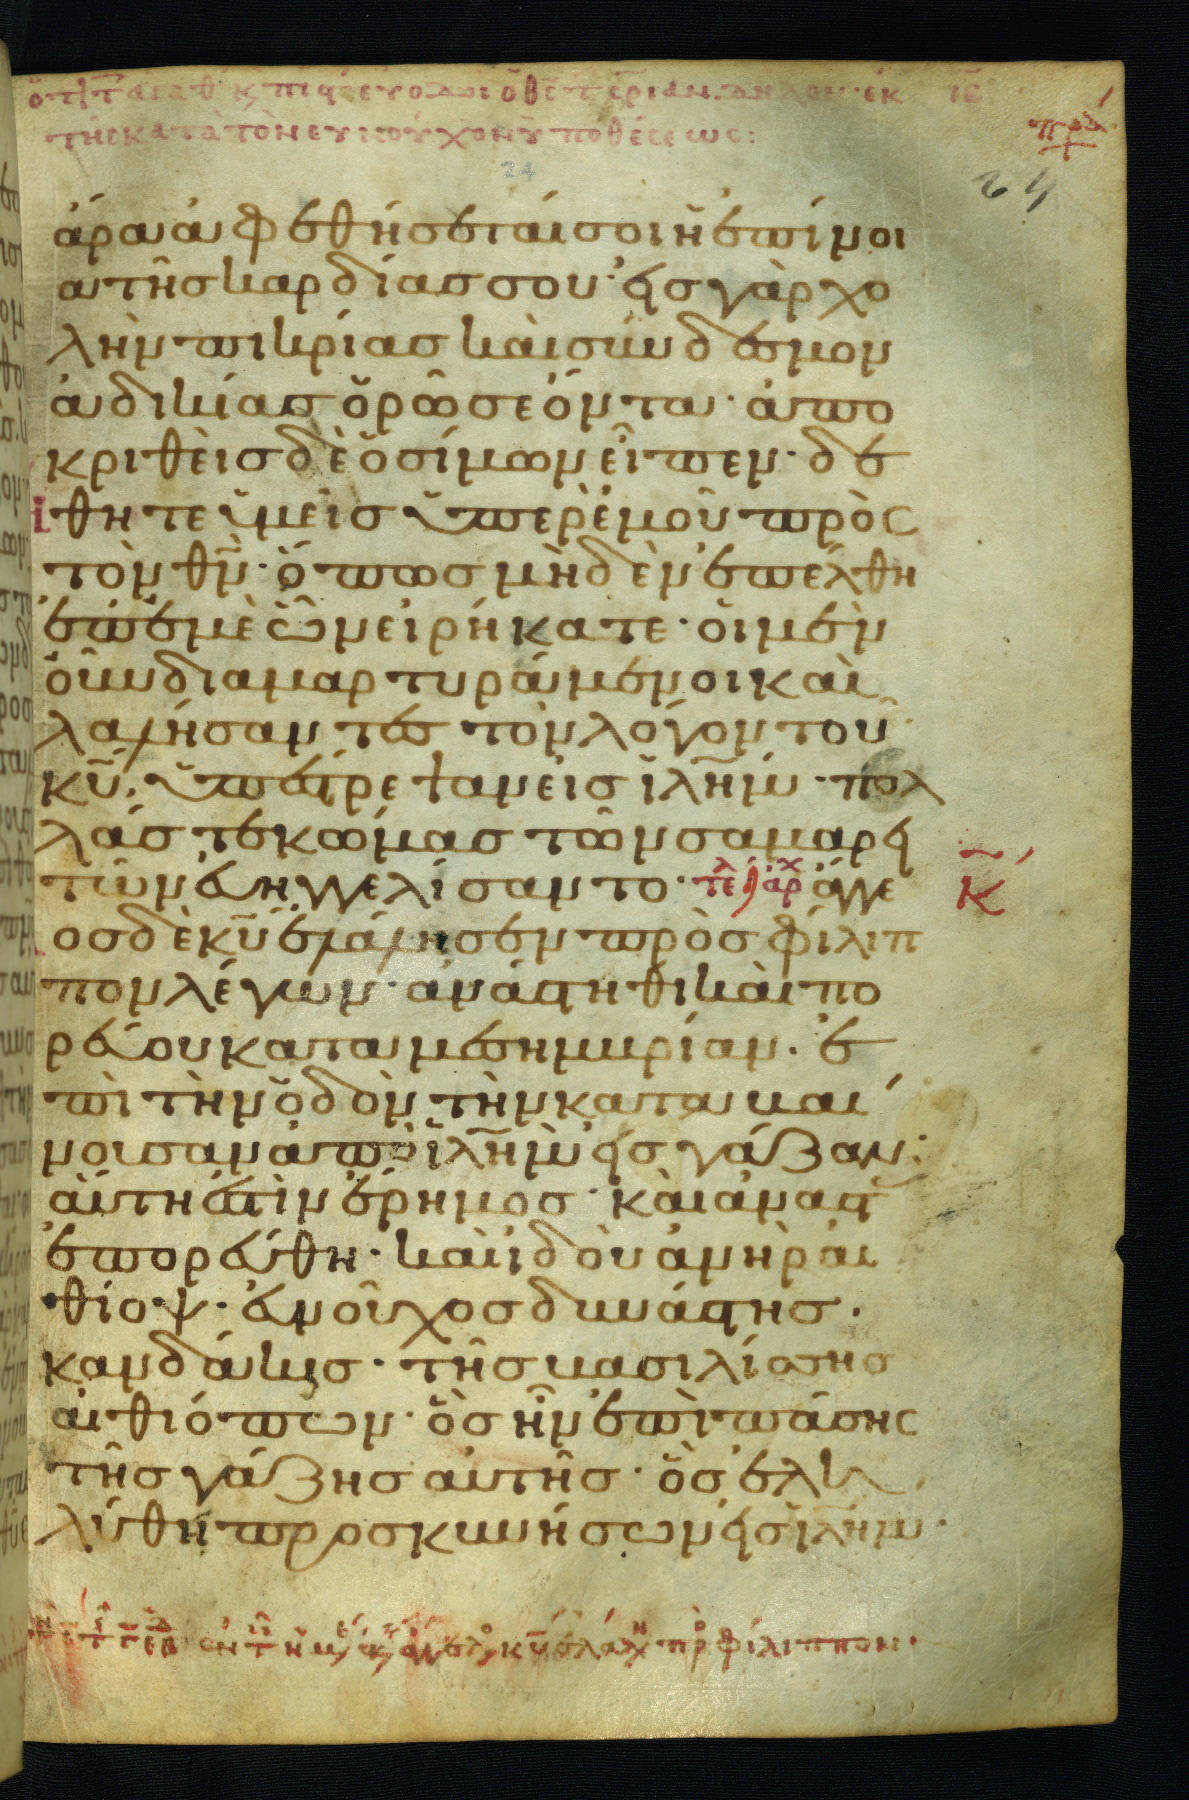 τῆς κατὰ τὸν εὐνοῦχον ὑποθέσεως:
πρξ
24
24
ἄρα ἀφεθήσεταί σοι ἡ ἐπίνοι
α τῆς καρδίας σου· εἰς γὰρ χο
λὴν πικρίας καὶ σύνδεσμον
ἀδικίας ὁρῶ σε ὄντα· ἀπο
κριθεὶς δὲ ὁ σίμων εἶπεν· δε
ήθητε ὑμεῖς ὑπὲρ ἐμοῦ πρὸς
τὸν θν̄· ὅπως μηδὲν ἐπέλθη
ἐπ' ἐμὲ ὧν εἰρήκατε· οἱ μὲν
οὖν διαμαρτυράμενοι καὶ
λαλήσαντες τὸν λόγον τοῦ
κῡ, ὑπέστρεψαν εἰς ἰλη̄μ· πολ
λάς τε κώμας τῶν σαμαρει
τῶν εὐηγγελίσαντο· τελ αρχ ἄγγε
κ
ος δὲ κῡ ἐλάλησεν πρὸς φίλιπ
πον λέγων· ἀνάστηθι καὶ πο
ρεύου κατα μεσημβρίαν· ἐ
πὶ τὴν ὁδὸν τὴν καταβαί
νουσαν ἀπὸ ἰλη̄μ εἰς γάζαν:
αὕτη ἐστὶν ἔρημος· καὶ ἀναστ
ἐπορεύθη· καὶ ἰδοὺ ἀνὴρ αἰ
θίοψ· εὐνοῦχος δυνάστης·
κανδάκης· τῆς βασιλίσσης
αἰθιόπων· ὃς ἦν ἐπὶ πάσης
τῆς γάζης αὐτῆς· ὃς ἐλη
λύθη προσκυνήσων εἰς ἰλη̄μ·
κῡ ἐλάλη πρ φίλιππον·